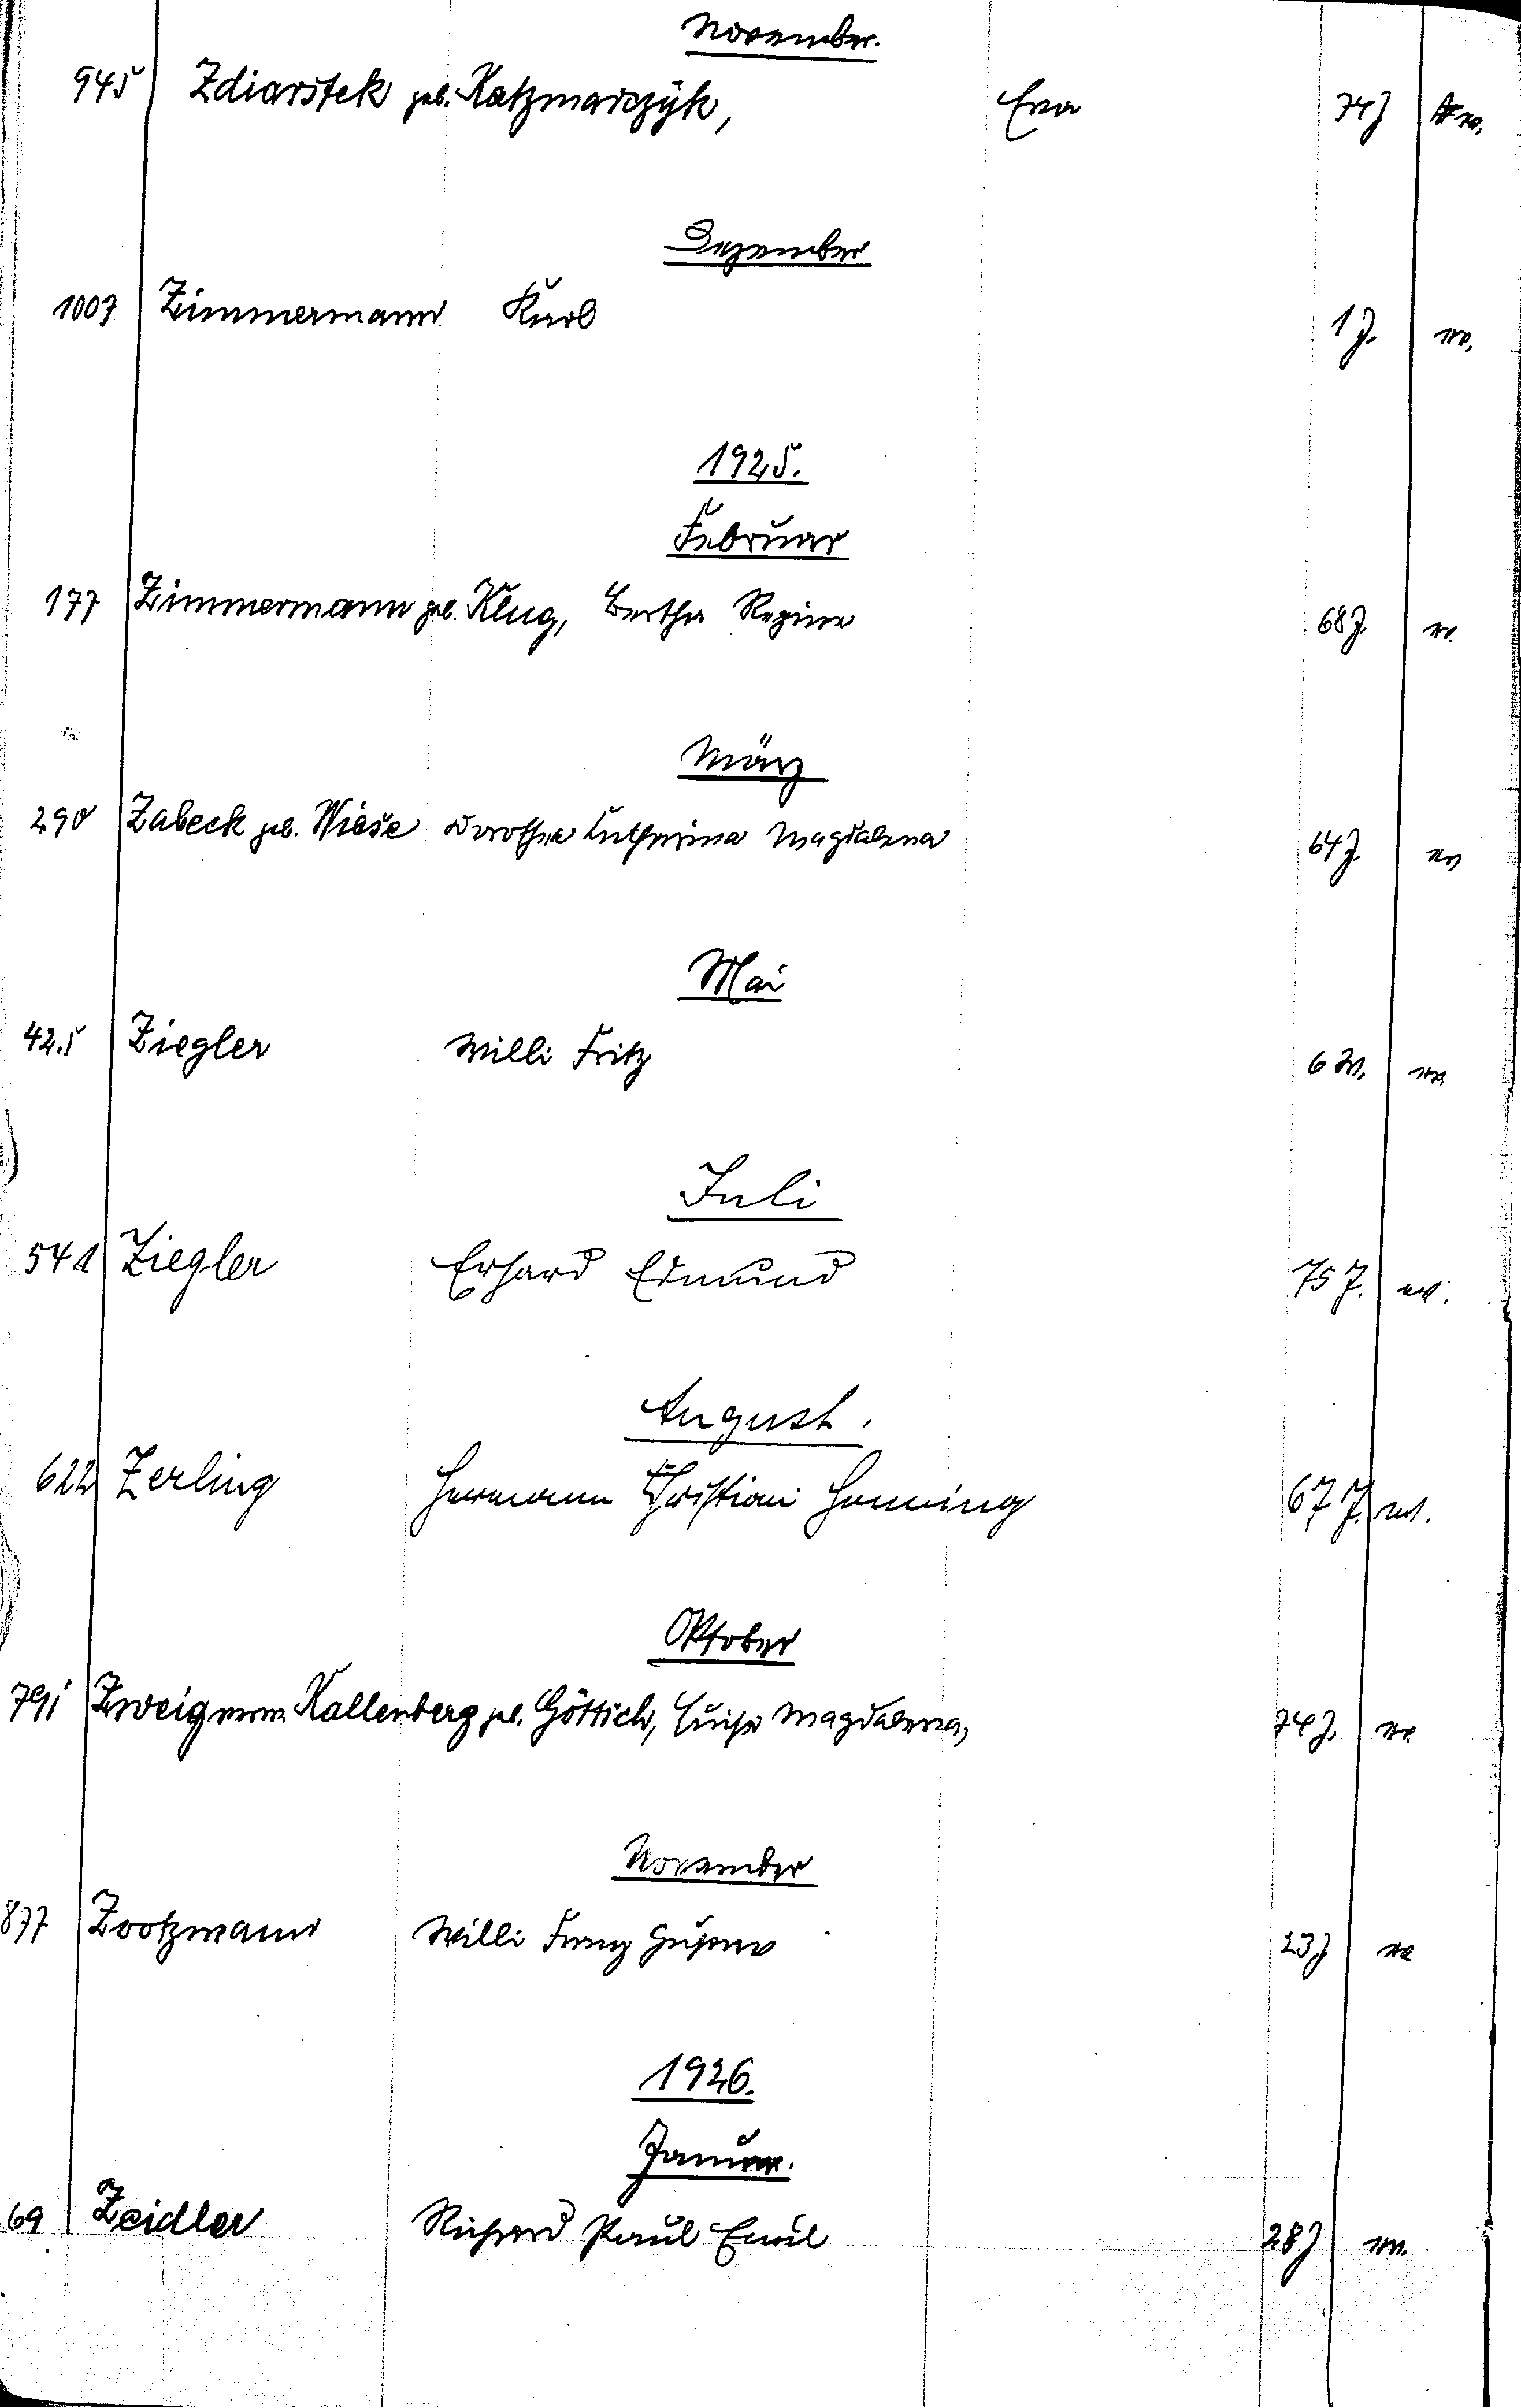 November.
945 Zdiarstek geb. Katzmarczyk, Eva 74 J
Dezember
1007 Zimmermann Karl 1 J.
1925.
Februar
177 Zimmermann geb. Klug, Bertha Regina 68 J.
März
290 Zabeck geb. Wiese Dorothea Catharina Magdalena 64 J.
Mai
425 Ziegler Willi Fritz 6 M.
Juli
541 Ziegler Erhard Edmund 75 J.
August.
622 Zerling Hermann Christian Henning 67 J.
Oktober
791 Zweig verw. Kallenberg geb. Göttich, Luise Magdalena, 74 J.
November
877 Zootzmann Willi Franz Gustav 23 J
1926.
Januar.
69 Zeidler Richard Paul Emil 28 J